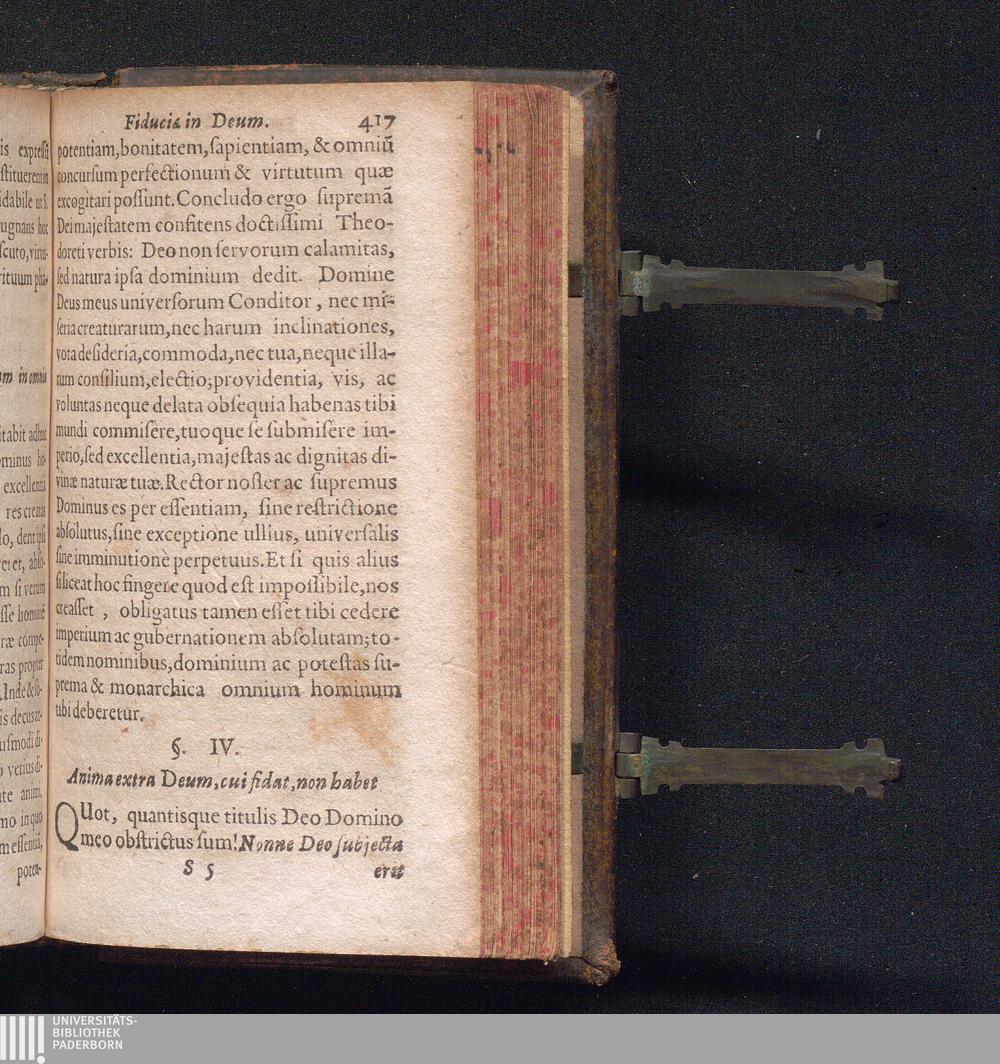 is expressū
stituerent in
idabile ut S.
ugnans hoc
scuto, virtu-
rituum phi-
um in omnia
itabit adhuc
minus ho-
excellentiâ
res creatas
lo, dent ipsi
eret, abso-
m si verum
sse hominē
ræ compe-
ras propter
. Inde & so-
is decus ac-
usmodi di-
o verius di-
te animi.
no in quo
m essentiâ,
poten-
Fiducia in Deum. 417
potentiam, bonitatem, sapientiam, & omniū
concursum perfectionum & virtutum quæ
excogitari possunt. Concludo ergo supremā
Dei majestatem confitens doctissimi Theo-
doreti verbis: Deo non servorum calamitas,
sed natura ipsa dominium dedit. Domine
Deus meus universorum Conditor, nec mi-
seria creaturarum, nec harum inclinationes,
vota desideria, commoda, nec tua, neque illa-
rum consilium, electio; providentia, vis, ac
voluntas neque delata obsequia habenas tibi
mundi commisêre, tuoque se submisêre im-
perio, sed excellentia, majestas ac dignitas di-
vinæ naturæ tuæ. Rector noster ac supremus
Dominus es per essentiam, sine restrictione
absolutus, sine exceptione ullius, universalis
sine imminutionè perpetuus. Et si quis alius
si liceat hoc fingere quod est impossibile, nos
creasset, obligatus tamen esset tibi cedere
imperium ac gubernationem absolutam; to-
tidem nominibus, dominium ac potestas su-
prema & monarchica omnium hominum
tibi deberetur.
§. IV.
Anima extra Deum, cui fidat, non habet
QUot, quantisque titulis Deo Domino
meo obstrictus sum! Nonne Deo subjecta
S 5 erit
UNIVERSITÄTS-
BIBLIOTHEK
PADERBORN